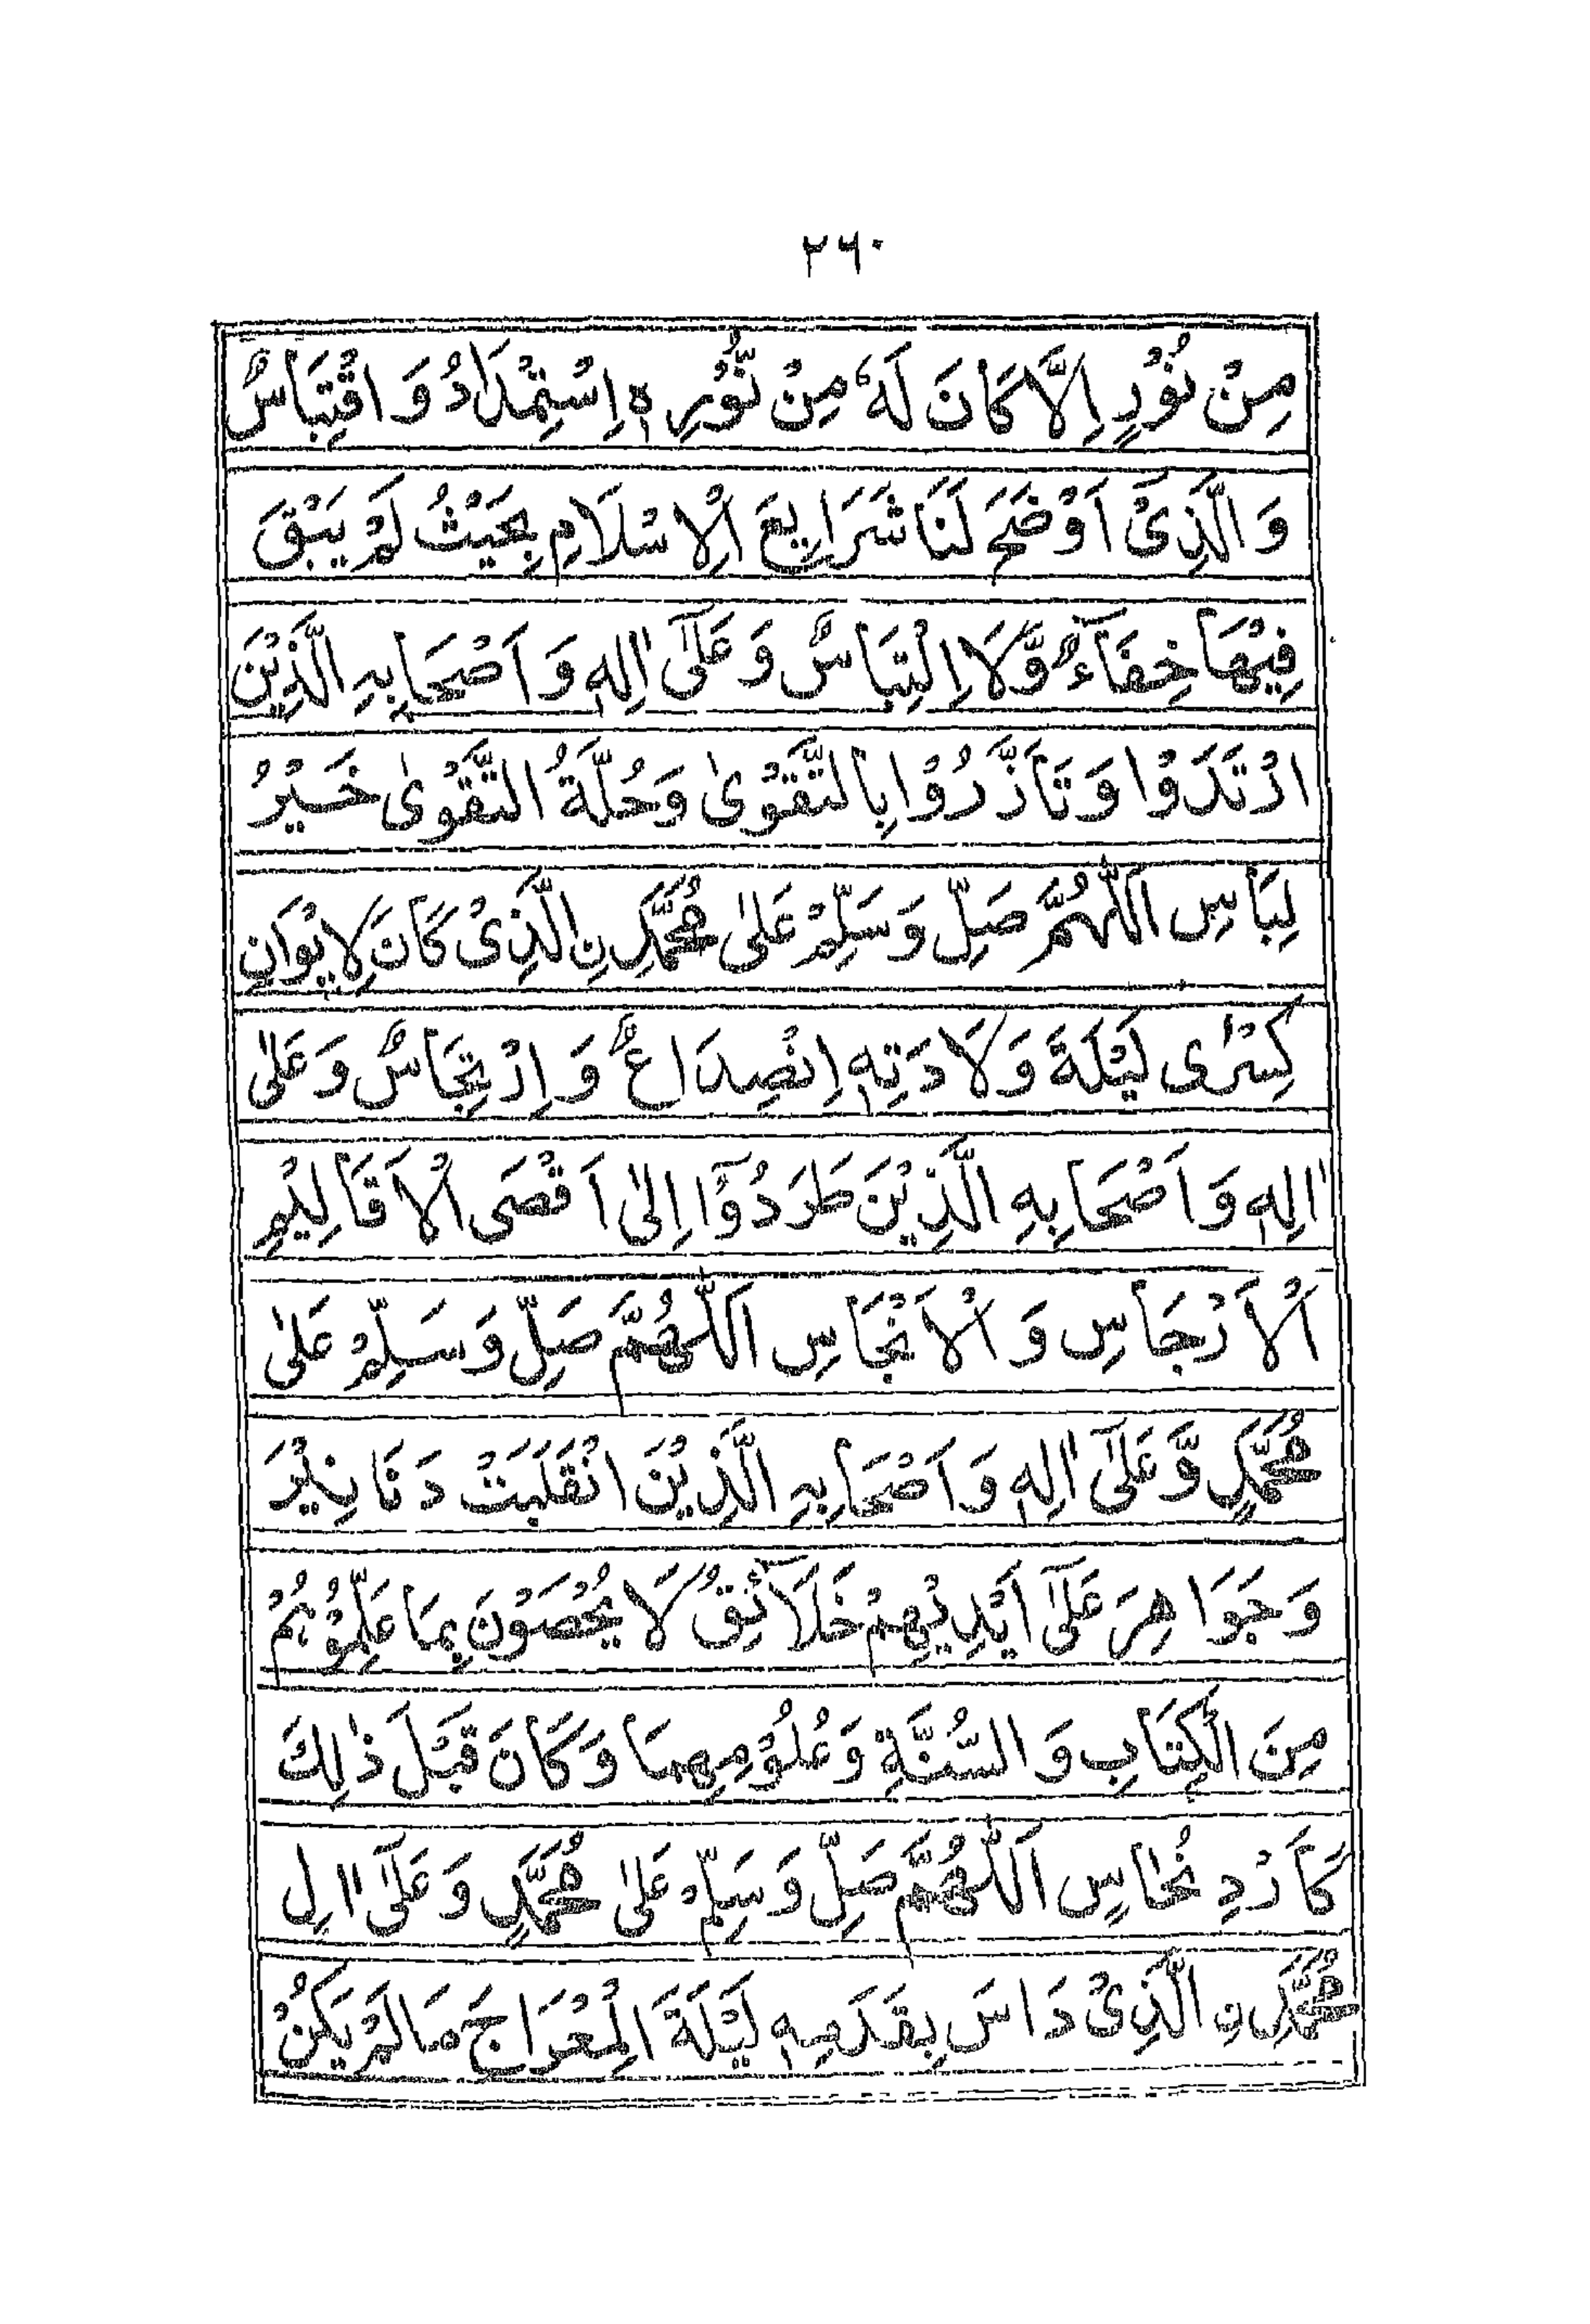 ٢٦٠
مِنْ نُوْرٍ اِلَّا كَانَ لَهٗ مِنْ نُّوْرِهٖ اِسْتِمْدَادُ وَ اقْتِبَاسٌ
وَ الَّذِىْ اَوْضَحَ لَنَا شَرَايِعَ الْاِسْلَامِ بِحَيْثُ لَمْ يَبْقَ
فِيْهَا خِفَآءٌ وَّلَا اِلْتِبَاسٌ وَعَلٰٓى اٰلِهٖ وَ اَصْحَابِهِ الَّذِيْنَ
ارْتَدَوْا وَ تَاَزَّرُوْا بِالتَّقْوٰى وَحُلَّةُ التَّقْوٰى خَيْرُ
لِبَاسٍ اَللّٰهُمَّ صَلِّ وَسَلِّمْ عَلٰى مُحَمَّدِنِ الَّذِىْ كَانَ لِاِيْوَانِ
كِسْرٰى لَيْلَةَ وَلَادَتِهٖ اِنْصِدَاعٌ وَ اِرْتِجَاسٌ وَعَلٰى
اٰلِهٖ وَ اَصْحَابِهِ الَّذِيْنَ طَرَدُوْٓا اِلٰى اَقْصَى الْاَقَالِيْمِ
اَلْاَرْجَاسِ وَ الْاَنْجَاسِ اَللّٰهُمَّ صَلِّ وَسَلِّمْ عَلٰى
مُحَمَّدٍ وَّعَلٰٓى اٰلِهٖ وَ اَصْحَابِهِ الَّذِيْنَ انْقَلَبَتْ دَنَانِيْرَ
وَجَوَاهِرَ عَلٰٓى اَيْدِيْهِمْ خَلَآئِقُ لَا يُحْصَوْنَ بِمَا عَلَّمُوْهُمْ
مِنَ الْكِتَابِ وَ السُّنَّةِ وَعُلُوْمِهِمَا وَكَانَ قَبْلَ ذٰلِكَ
كَاَرْدِءِ نُحَاسٍ اَللّٰهُمَّ صَلِّ وَسَلِّمْ عَلٰى مُحَمَّدٍ وَعَلٰٓى اٰلِ
مُحَمَّدِنِ الَّذِىْ دَاسَ بِقَدَمِهٖ لَيْلَةَ الْمِعْرَاجِ مَالَمْ يَكُنْ